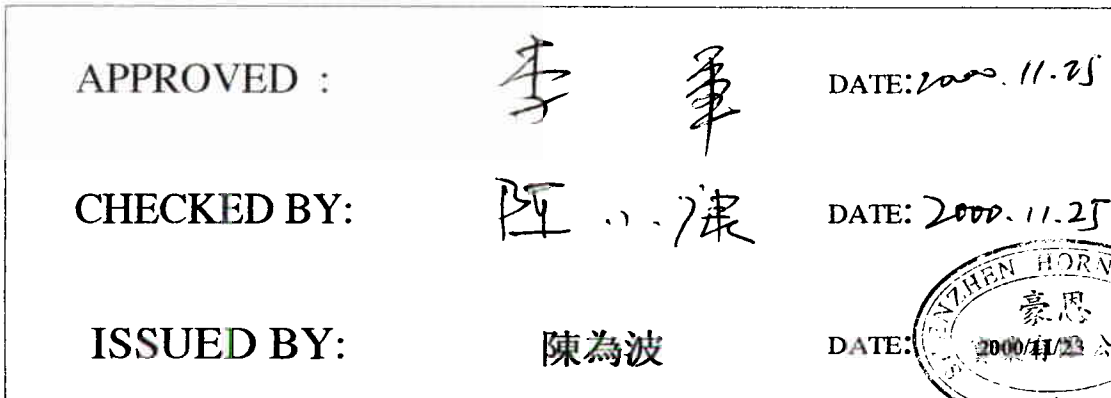 APPROVED : 李 軍 DATE: 2000.11.25
CHECKED BY: DATE: 2000.11.25
ISSUED BY: 陳為波 DATE: 2000/11/23
SHENZHEN HORN
豪恩